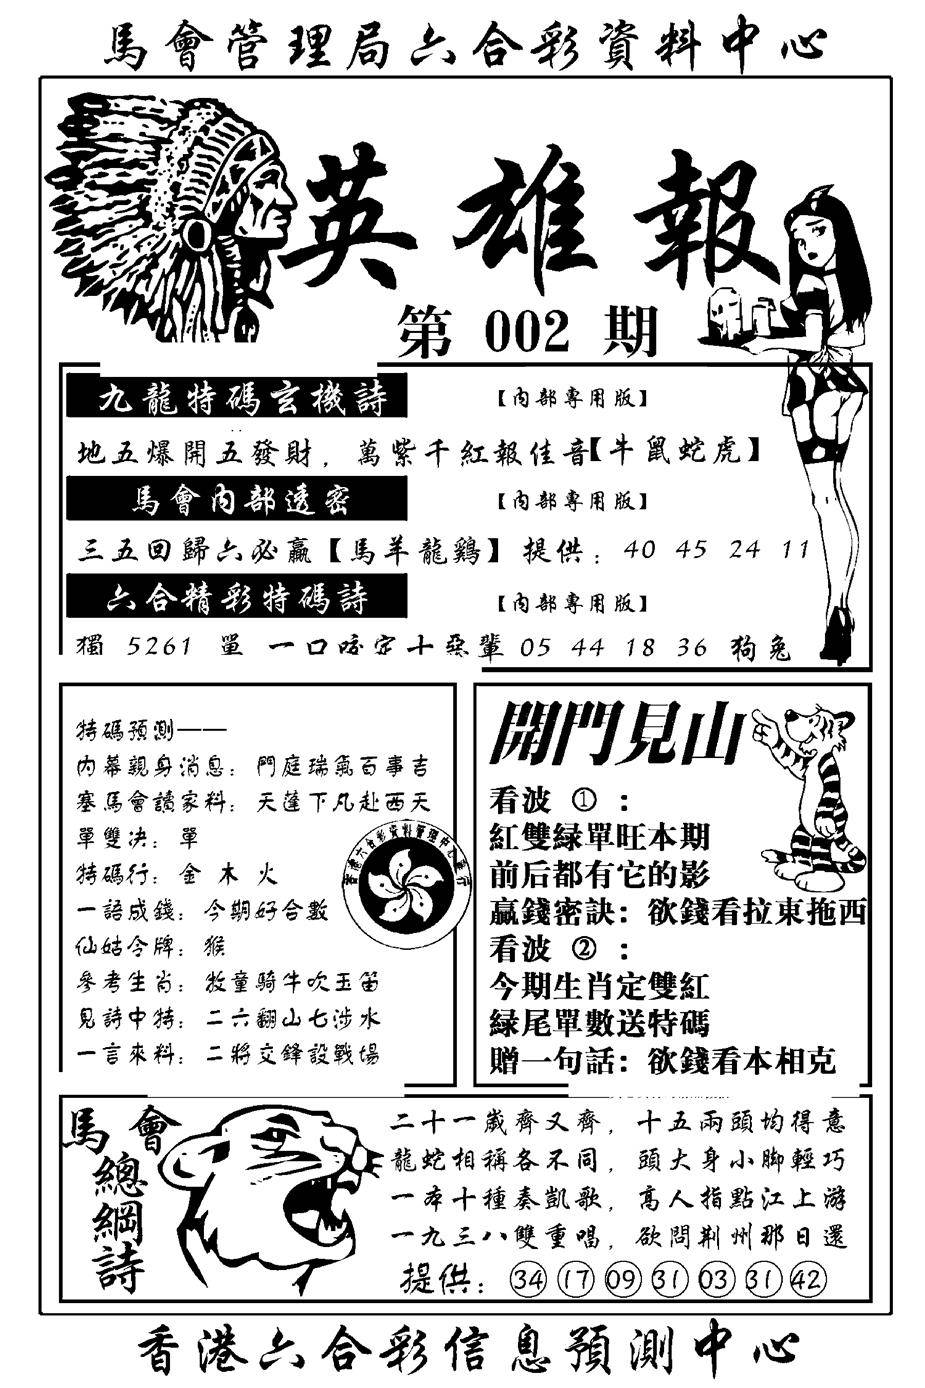 馬會管理局六合彩資料中心
英雄報
第 002 期
九龍特碼玄機詩
【内部專用版】
地五爆開五發財，萬紫千紅報佳音【牛鼠蛇虎】
馬會内部透密
【内部專用版】
三五回歸六必贏【馬羊龍鷄】提供：40 45 24 11
六合精彩特碼詩
【内部專用版】
獨 5261 單 一口咬定十惡輩 05 44 18 36 狗兔
特碼預測——
内幕親身消息：門庭瑞氣百事吉
塞馬會讀家料：天蓬下凡赴西天
單雙决：單
特碼行：金 木 火
一語成錢：今期好合數
仙姑令牌：猴
參考生肖：牧童騎牛吹玉笛
見詩中特：二六翻山七涉水
一言來料：二將交鋒設戰場
開門見山
看波 ①：
紅雙緑單旺本期
前后都有它的影
贏錢密訣：欲錢看拉東拖西
看波 ②：
今期生肖定雙紅
緑尾單數送特碼
贈一句話：欲錢看本相克
馬會
總綱詩
二十一歲齊又齊，十五兩頭均得意
龍蛇相稱各不同，頭大身小脚輕巧
一本十種奏凱歌，高人指點江上游
一九三八雙重唱，欲問荆州那日還
提供：34 17 09 31 03 31 42
香港六合彩信息預測中心